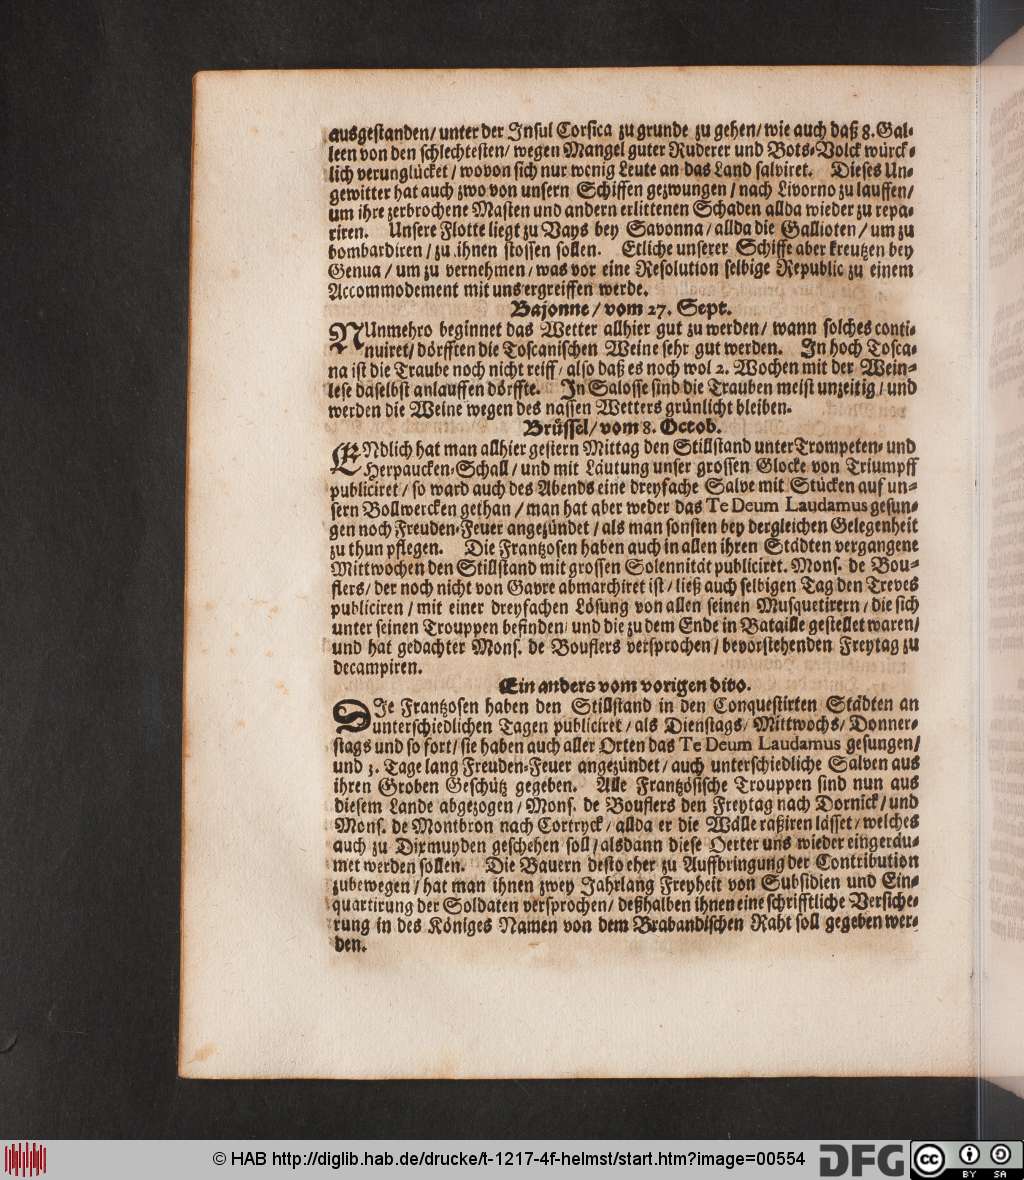 ausgestanden/ unter der Insul Corsica zu grunde zu gehen/ wie auch daß 8. Gal-
leen von den schlechtesten/ wegen Mangel guter Ruderer und Bots-Volck würck-
lich verunglücket/ wovon sich nur wenig Leute an das Land salviret. Dieses Un-
gewitter hat auch zwo von unsern Schiffen gezwungen/ nach Livorno zu lauffen/
um ihre zerbrochene Masten und andern erlittenen Schaden allda wieder zu repa-
riren. Unsere Flotte liegt zu Vays bey Savonna/ allda die Gallioten/ um zu
bombardiren/ zu ihnen stossen sollen. Etliche unserer Schiffe aber kreutzen bey
Genua/ um zu vernehmen/ was vor eine Resolution selbige Republic zu einem
Accommodement mit uns ergreiffen werde.
Bajonne/ vom 27. Sept.
NUnmehro beginnet das Wetter allhier gut zu werden/ wann solches conti-
nuiret/ dörfften die Toscanischen Weine sehr gut werden. In hoch Tosca-
na ist die Traube noch nicht reiff/ also daß es noch wol 2. Wochen mit der Wein-
lese daselbst anlauffen dörffte. In Salosse sind die Trauben meist unzeitig/ und
werden die Weine wegen des nassen Wetters grünlicht bleiben.
Brüssel/ vom 8. Octob.
ENdlich hat man allhier gestern Mittag den Stillstand unter Trompeten- und
Herpaucken-Schall/ und mit Läutung unser grossen Glocke von Triumpff
publiciret/ so ward auch des Abends eine dreyfache Salve mit Stücken auf un-
sern Bollwercken gethan/ man hat aber weder das Te Deum Laudamus gesun-
gen noch Freuden-Feuer angezündet/ als man sonsten bey dergleichen Gelegenheit
zu thun pflegen. Die Frantzosen haben auch in allen ihren Städten vergangene
Mittwochen den Stillstand mit grossen Solennität publiciret. Mons. de Bou-
flers/ der noch nicht von Gavre abmarchiret ist/ ließ auch selbigen Tag den Treves
publiciren/ mit einer dreyfachen Lösung von allen seinen Musquetirern/ die sich
unter seinen Trouppen befinden/ und die zu dem Ende in Bataille gestellet waren/
und hat gedachter Mons. de Bouflers versprochen/ bevorstehenden Freytag zu
decampiren.
Ein anders vom vorigen dito.
DIe Frantzosen haben den Stillstand in den Conquestirten Städten an
unterschiedlichen Tagen publiciret/ als Dienstags/ Mittwochs/ Donner-
stags und so fort/ sie haben auch aller Orten das Te Deum Laudamus gesungen/
und 3. Tage lang Freuden-Feuer angezündet/ auch unterschiedliche Salven aus
ihren Groben Geschütz gegeben. Alle Frantzösische Trouppen sind nun aus
diesem Lande abgezogen/ Mons. de Bouflers den Freytag nach Dornick/ und
Mons. de Montbron nach Cortryck/ allda er die Wälle raßiren lässet/ welches
auch zu Dixmuyden geschehen soll/ alsdann diese Oerter uns wieder eingeräu-
met werden sollen. Die Bauern desto eher zu Auffbringung der Contribution
zubewegen/ hat man ihnen zwey Jahrlang Freyheit von Subsidien und Ein-
quartirung der Soldaten versprochen/ deßhalben ihnen eine schrifftliche Versiche-
rung in des Königes Namen von dem Brabandischen Raht soll gegeben wer-
den.
© HAB http://diglib.hab.de/drucke/t-1217-4f-helmst/start.htm?image=00554
DFG
cc BY SA